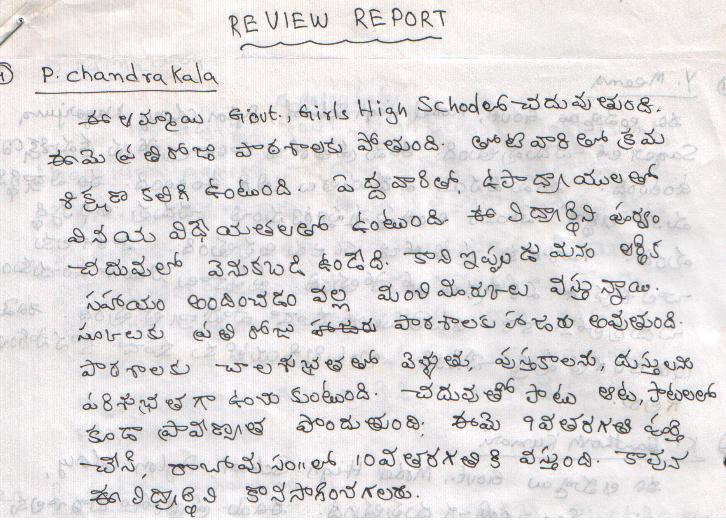 REVIEW REPORT
① P. chandra Kala
ఈ అమ్మాయి Govt., Girls High Schoolలో చదువుతుంది.
ఈమె ప్రతిరోజూ పాఠశాలకు పోతుంది. తోటి వారితో క్రమ
శిక్షణా కలిగి ఉంటుంది. పెద్దవారితో, ఉపాధ్యాయులతో
వినయ విధేయతలతో ఉంటుంది. ఈ విద్యార్థిని పూర్వం
చదువులో వెనుకబడి ఉండేది. కాని ఇప్పుడు మనం ఆర్థిక
సహాయం అందించడం వల్ల మంచి మార్కులు వస్తున్నాయి.
ప్రతి రోజు పాఠశాలకు హాజరు అవుతుంది.
పాఠశాలకు చాల శుభ్రతతో వెళ్ళుతు, పుస్తకాలను, దుస్తులను
పరిశుభ్రతగా ఉంచుకుంటుంది. చదువుతో పాటు ఆటు, పాటలలో
కూడా ప్రావీణ్యత పొందుతుంది. ఈమె 9వ తరగతి పూర్తి
చేసి, రాబోవు సం॥లో, 10వ తరగతి కి వస్తుంది. కావున
ఈ విద్యార్థిని కొనసాగించగలరు.